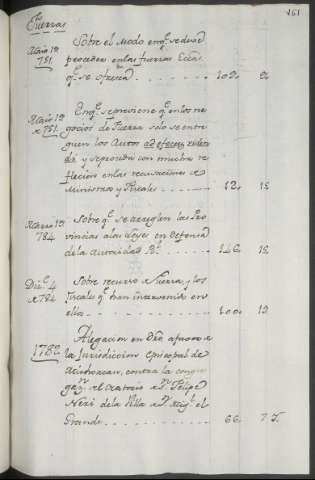 161
Fuerzas
Sobre el Modo en q.e se deve
proceder en las fuerzas Ecc.as
751. q.e se ofrecen 109. 9.
En q.e se previene q.e en los ne
gocios de Fuerza solo se entre
751. guen los Autos ad efectum videndi
y se proceda con mucha re
flecion en las recusaciones de
Ministros y Fiscales 12. 15
Sobre q.e se arreglen las Pro
784. vincias a las Leyes en defensa
de la autoridad R.l 146. 15
Dic.e 4 Sobre recurso de Fuerza, y los
de 784 Fiscales q.e han intervenido en
ella 100. 19
1782 Alegacion en dro. apoyo de
la Jurisdiccion Episcopal de
Michoacan, contra la congre
gaz.n del oratorio de S.n Felipe
Neri de la Villa de S.n Mig.l el
Grande 66. 7